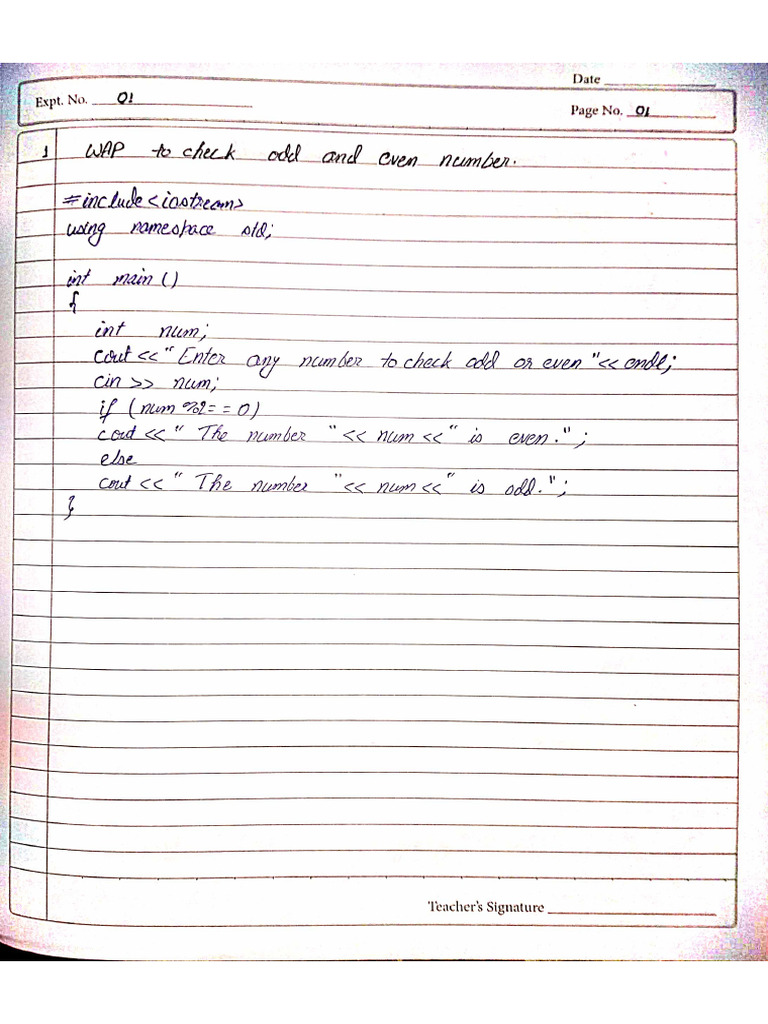 Date
Expt. No. 01
Page No. 01
1 WAP to check odd and even number.
#include<iostream>
using namespace std;
int main()
{
int num;
cout<<"Enter any number to check odd or even"<<endl;
cin >> num;
if (num %2= = 0)
cout<<" The number "<< num<<" is even.";
else
cout<<" The number "<< num<<" is odd.";
}
Teacher's Signature